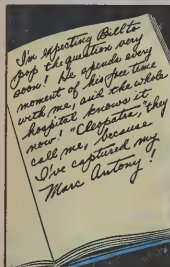 I'm expecting Bill to
pop the question very
soon! He spends every
moment of his free time
with me, and the whole
hospital knows it
now! "Cleopatra," they
call me, because
I've captured my
Marc Antony!